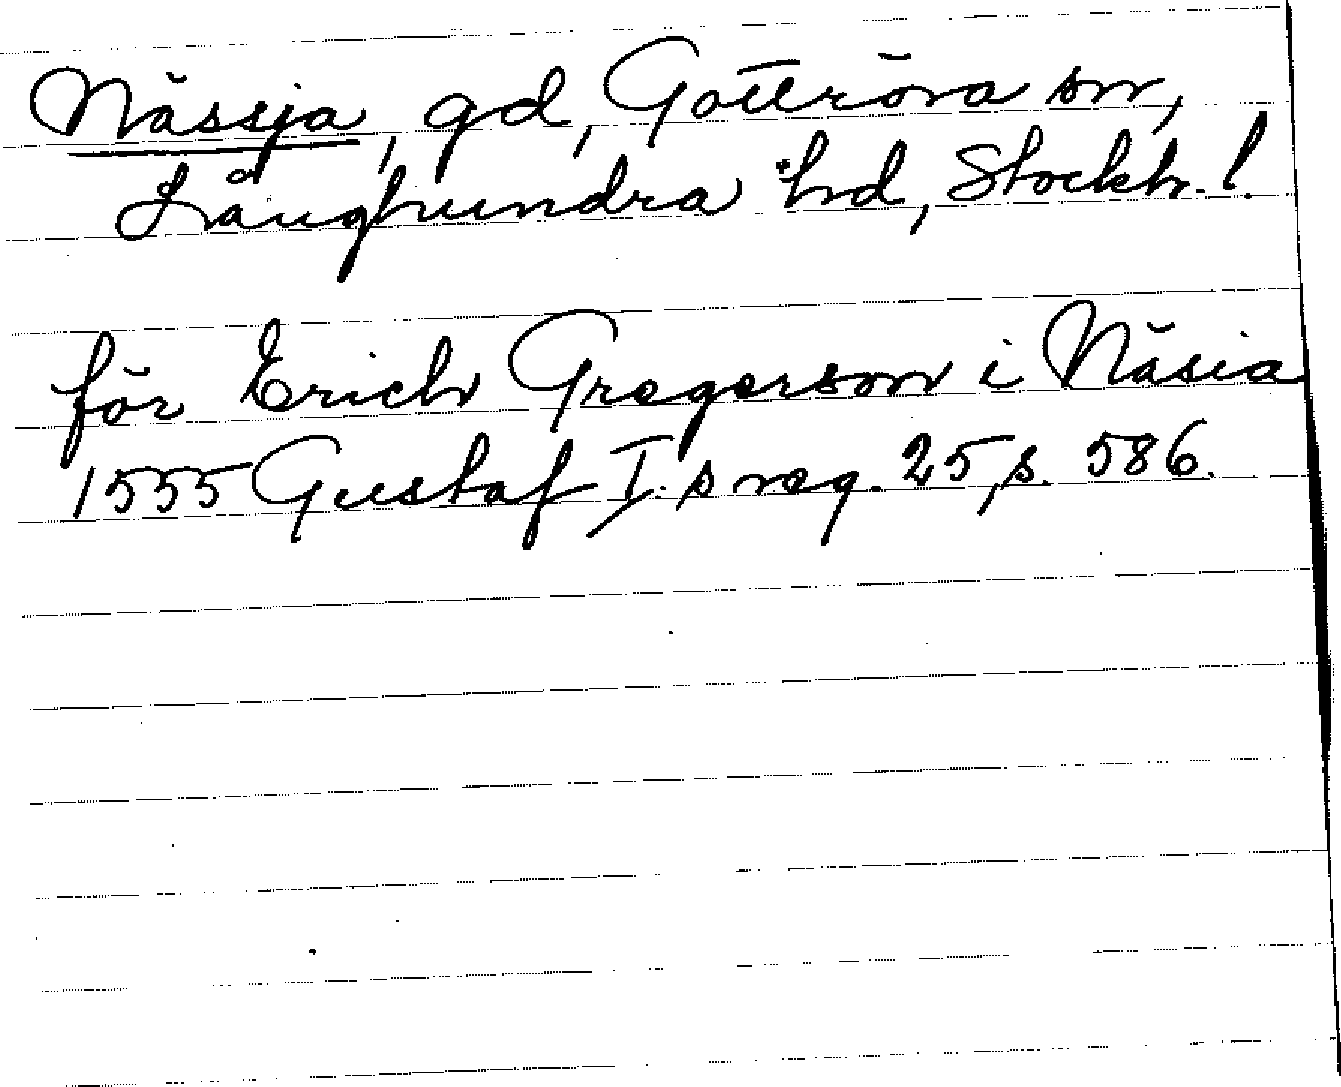 Nässja, gd, Gottröra sn,
Långhundra hd, Stockh. l.
för Erich Gregerson i Näsia
1555 Gustaf I:s reg. 25, s. 586.